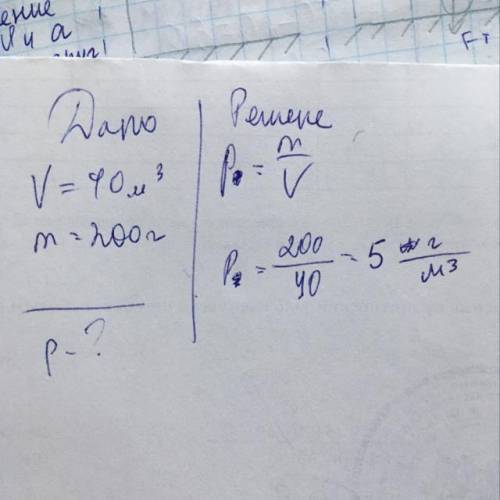 ение
и а
Дано
V = 40 м³
m = 200 г
p - ?
Решене
P = m / V
P = 200 / 40 = 5 г / м³